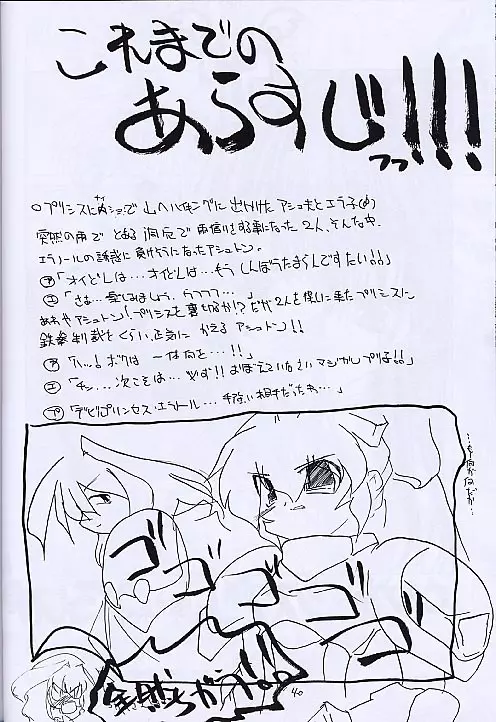 これまでの
あらすじッ!!!
○プリンスにナイショで 山へハイキングに出かけたアシュ夫とエラ子(め)
突然の雨で とある洞窟で雨宿りをする事になった2人。そんな中、
エラノールの誘惑に負けそうになったアシュトン。
ア「オイどんは…オイどんは…もう しんぼうたまらんですたい!!」
エ「さぁ…楽しみましょう、うフフフ…」
ああ アシュトン!プリンスを裏切るか!?だが2人を探しに来たプリンスに
鉄拳制裁をくらい、正気に かえる アシュトン!!
ア「ハッ…!ボクは 一体何を…!!」
エ「チッ…次こそは…必ず!!おぼえていなさい マジカルプリ子!!」
プ「デビプリンセス・エラノール…手強い相手だったわ…」
ゴゴゴゴゴ
全然ちがうッ!!
40